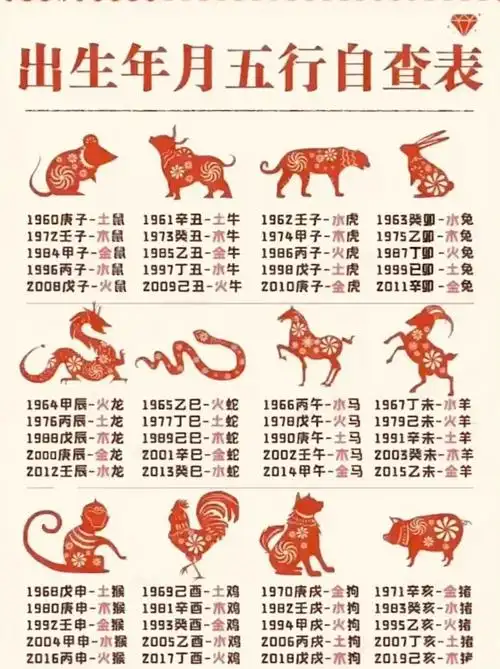 出生年月五行自查表
1960庚子-土鼠 1961辛丑-土牛 1962壬子-水虎 1963癸卯-水兔
1972壬子-木鼠 1973癸丑-木牛 1974甲子-木虎 1975乙卯-木兔
1984甲子-金鼠 1985乙丑-金牛 1986丙子-火虎 1987丁卯-火兔
1996丙子-水鼠 1997丁丑-水牛 1998戊子-土虎 1999已卯-土兔
2008戊子-火鼠 2009己丑-火牛 2010庚子-金虎 2011辛卯-金兔
1964甲辰-火龙 1965乙巳-火蛇 1966丙午-水马 1967丁未-水羊
1976丙辰-土龙 1977丁巳-土蛇 1978戊午-火马 1979己未-火羊
1988戊辰-木龙 1989己巳-木蛇 1990庚午-土马 1991辛未-土羊
2000庚辰-金龙 2001辛巳-金蛇 2002壬午-木马 2003癸未-木羊
2012壬辰-水龙 2013癸巳-水蛇 2014甲午-金马 2015乙未-金羊
1968戊申-土猴 1969己酉-土鸡 1970庚戌-金狗 1971辛亥-金猪
1980庚申-木猴 1981辛酉-木鸡 1982壬戌-水狗 1983癸亥-水猪
1992壬申-金猴 1993癸酉-金鸡 1994甲戌-火狗 1995乙亥-火猪
2004甲申-水猴 2005乙酉-水鸡 2006丙戌-土狗 2007丁亥-土猪
2016丙申-火猴 2017丁酉-火鸡 2018戊戌-木狗 2019己亥-木猪